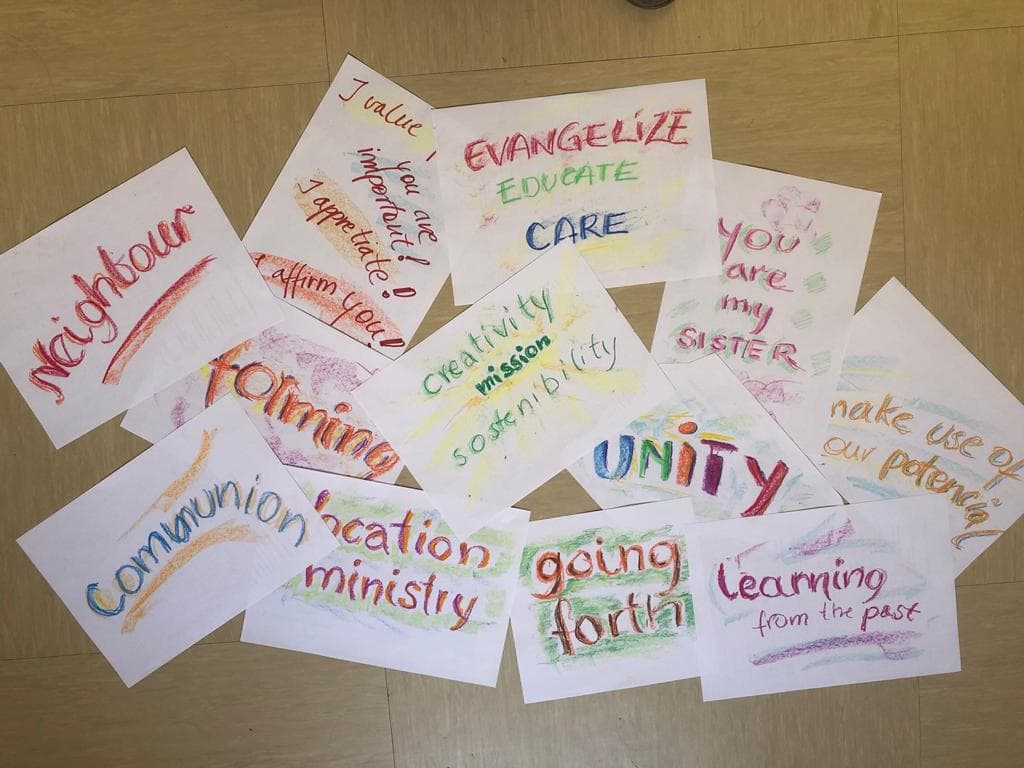 I value
you are
important!
I appretiate!
I affirm you!
EVANGELiZE
EDUCATE
CARE
Neighbour
you
are
my
SISTER
forming
Creativity
mission
sostenibility
UNiTY
make use of
our potencial
Communion
Vocation
ministry
going
forth
Learning
from the past